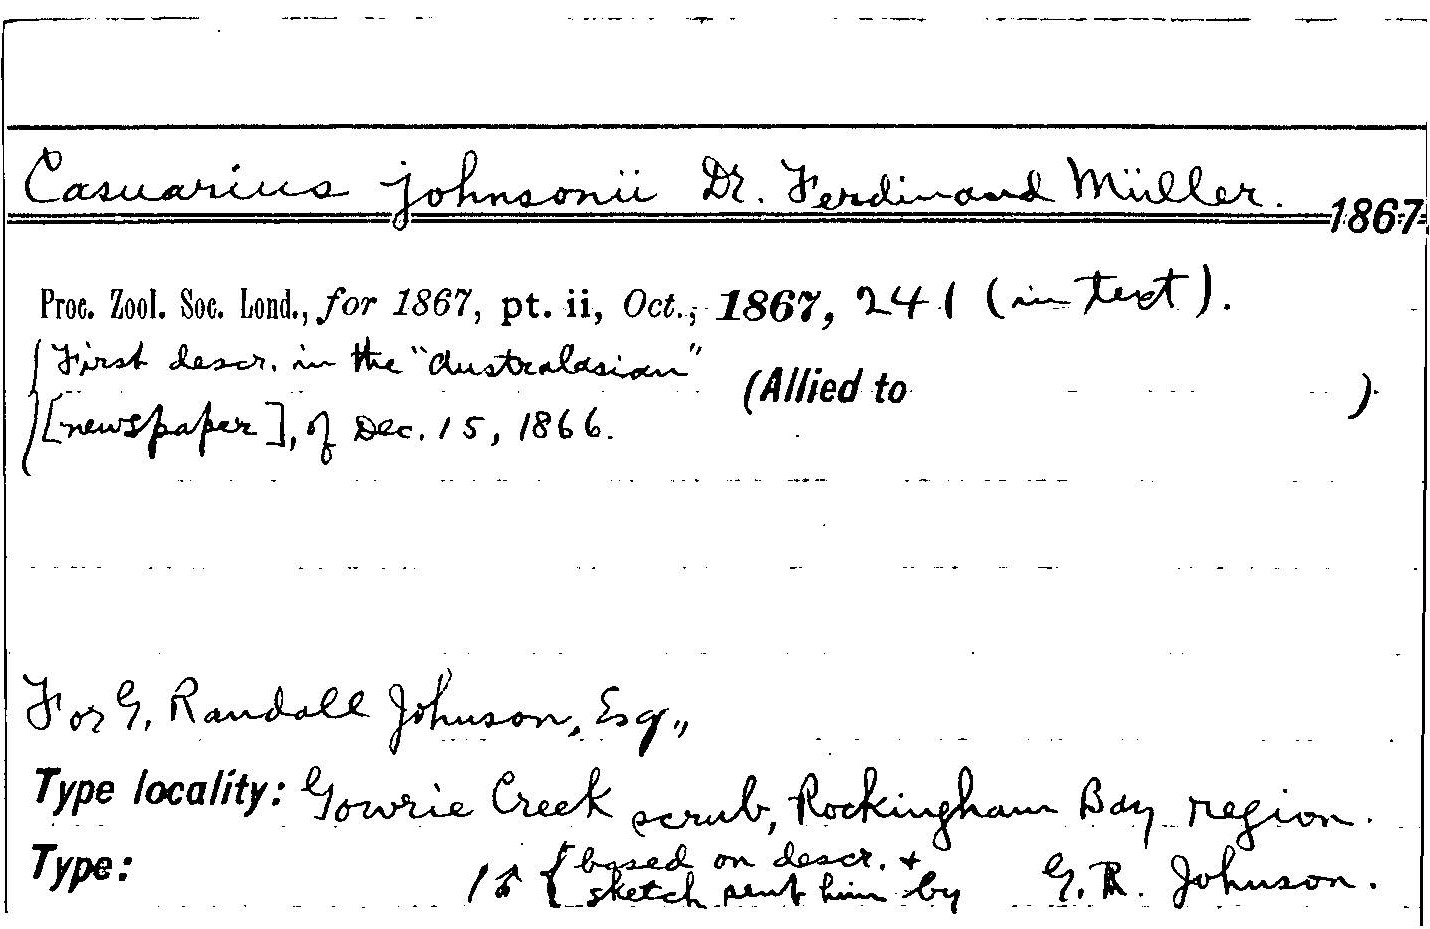 Casuarius johnsonii Dr. Ferdinand Müller.
1867.
Proc. Zool. Soc. Lond., for 1867, pt. ii, Oct., 1867, 241 (in text).
{First descr. in the "Australasian"
[newspaper], of Dec. 15, 1866.
(Allied to )
For G. Randall Johnson, Esq.,
Type locality: Gowrie Creek scrub, Rockingham Bay region.
Type: 1 ♂ {based on descr. +
sketch sent him by G. R. Johnson.